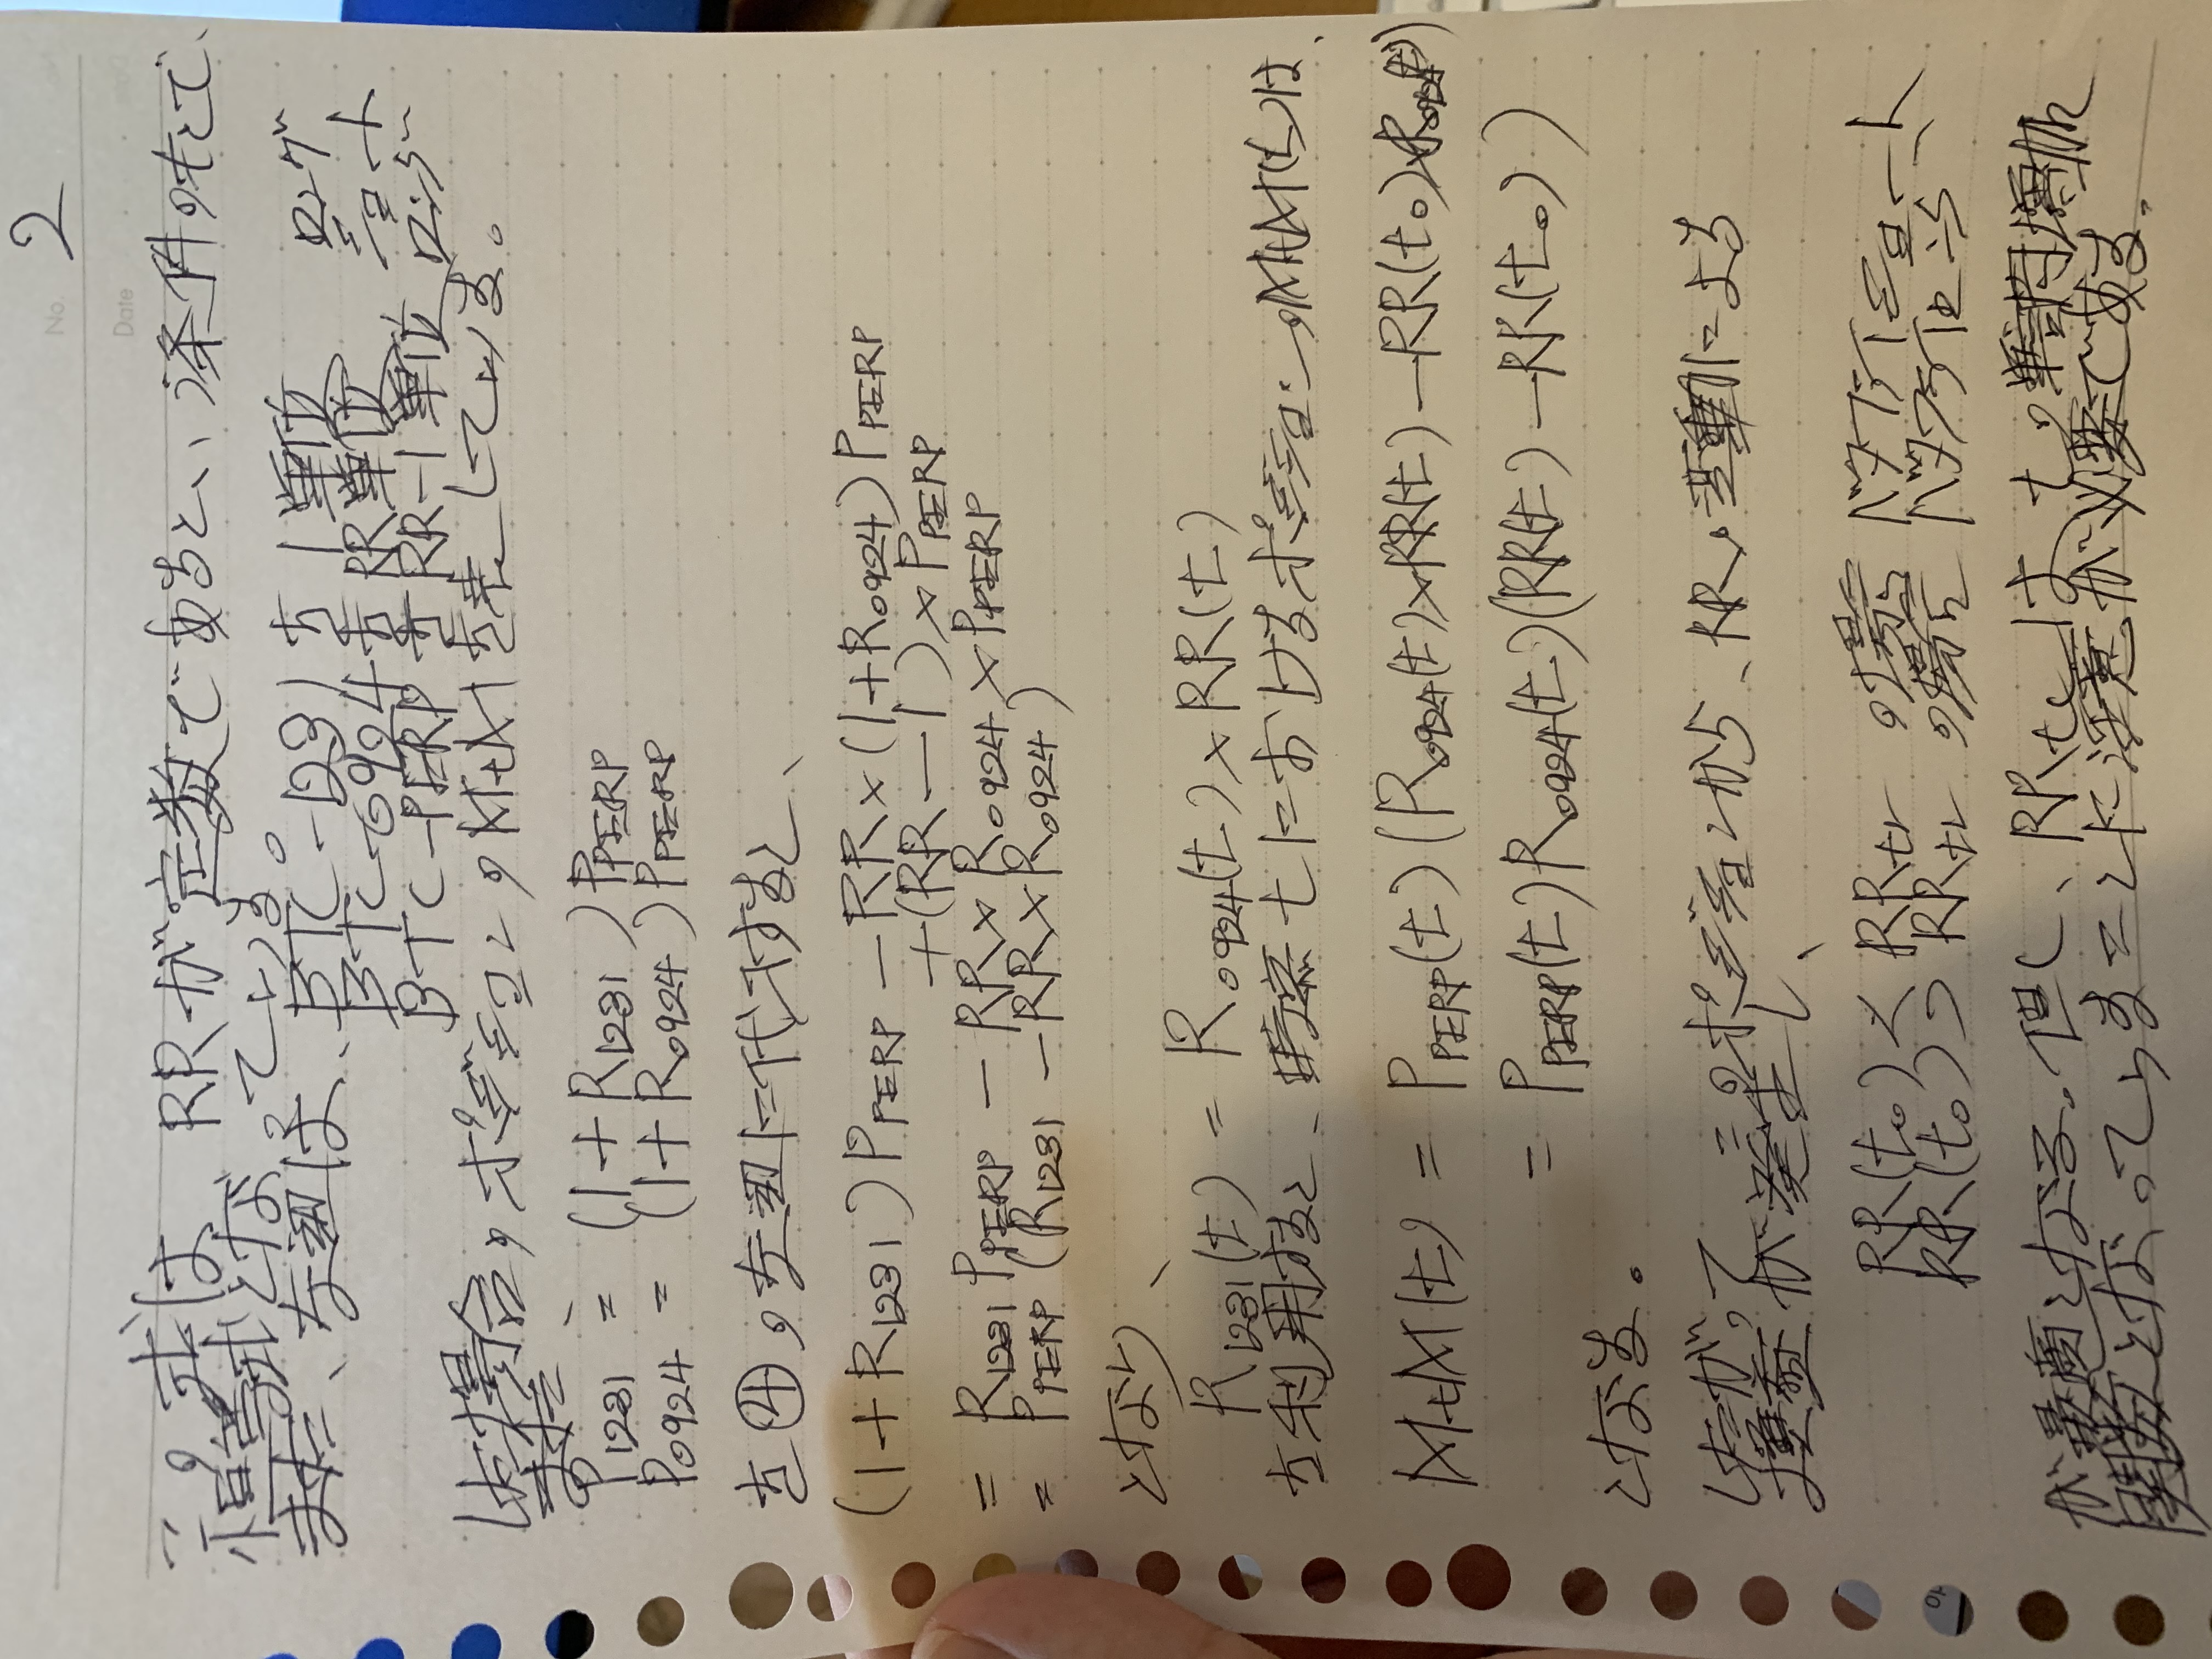 No. 2
Date
この式は RRが定数であるという条件のもとで、
恒等式となっている。
また、左辺は、BTC-1231を1単位 ロング
BTC-0924を RR単位 ショート
BTC-PERPを RR-1単位 ロング
した場合のポジションのMtMを表している。
また、
P1231 = (1+R1231)PPERP
P0924 = (1+R0924)PPERP
を④の左辺に代入すると、
(1+R1231)PPERP - RR×(1+R0924)PPERP
+(RR-1)×PPERP
= R1231 PPERP - RR×R0924×PPERP
= PPERP(R1231 - RR×R0924)
となり、
R1231(t) = R0924(t)×RR(t)
を利用すると、時点tにおけるポジションのMtM(t)は、
MtM(t) = PPERP(t)(R0924(t)×RR(t) - RR(t0)×R0924(t))
= PPERP(t)R0924(t)(RR(t) - RR(t0))
となる。
したがって このポジションから、RRの変動による
損益が発生し、
RR(t0) < RRtr の場合 バタフライショート
RR(t0) > RRtr の場合 バタフライロング
が最適となる。但し、RRtrは tの単調増加
関数となっていることに注意が必要である。